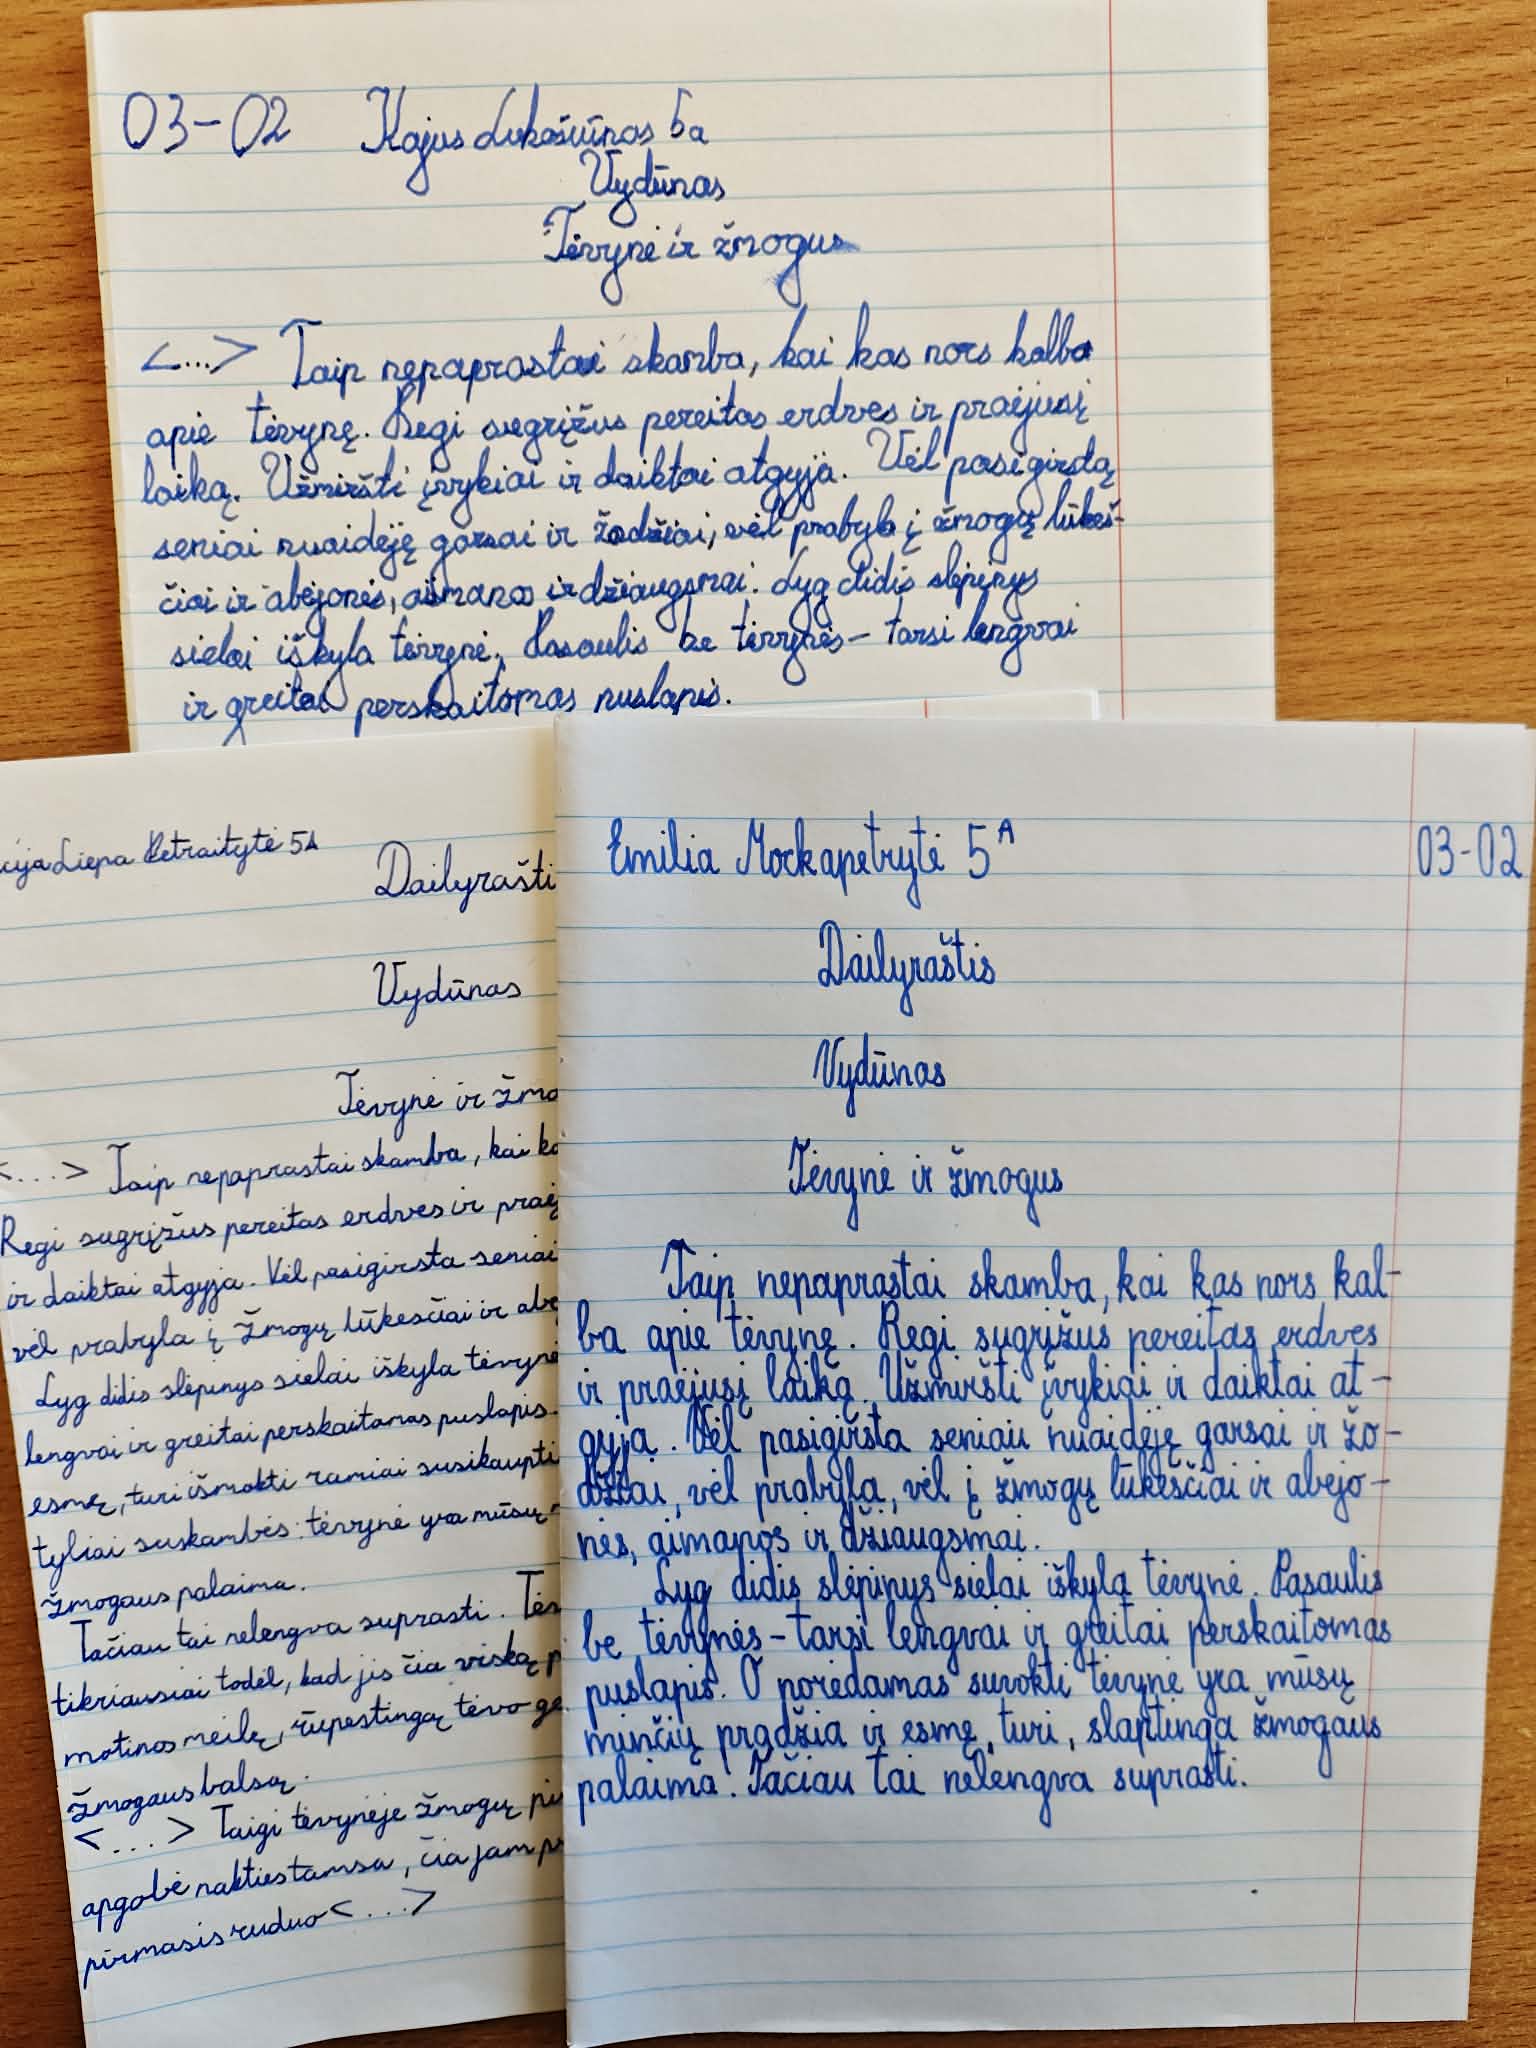 03-02 Kajus Lukošiūnas 5a
Vydūnas
Tėvynė ir žmogus
<...> Taip nepaprastai skamba, kai kas nors kalba
apie tėvynę. Regi sugrįžus pereitas erdves ir praėjusį
laiką. Užmiršti įvykiai ir daiktai atgyja. Vėl pasigirstą
seniai nuaidėję garsai ir žodžiai, vėl prabyla į žmogų lūkeš-
čiai ir abejonės, aimanos ir džiaugsmai. Lyg didis slėpinys
sielai iškyla tėvynė. Pasaulis be tėvynės – tarsi lengvai
ir greitai perskaitomas puslapis.
Liepa Petraitytė 5A
Dailyrašti
Vydūnas
Tėvynė ir žmo
<...> Taip nepaprastai skamba, kai ka
Regi sugrįžus pereitas erdves ir praėj
ir daiktai atgyja. Vėl pasigirsta seniai
vėl prabyla į žmogų lūkesčiai ir abe
Lyg didis slėpinys sielai iškyla tėvynė
lengvai ir greitai perskaitomas puslapis.
esmę, turi išmokti ramiai susikaupti
tyliai suskambės: tėvynė yra mūsų
žmogaus palaima.
Tačiau tai nelengva suprasti. Tėv
tikriausiai todėl, kad jis čia viską p
motinos meilę, rūpestingą tėvo ge
žmogaus balsą.
<...> Taigi tėvynėje žmogų pi
apgobė nakties tamsa, čia jam p
pirmasis ruduo <...>
Emilia Mockapetrytė 5A 03-02
Dailyraštis
Vydūnas
Tėvynė ir žmogus
Taip nepaprastai skamba, kai kas nors kal-
ba apie tėvynę. Regi sugrįžus pereitas erdves
ir praėjusį laiką. Užmiršti įvykiai ir daiktai at-
gyja. Vėl pasigirsta seniau nuaidėję garsai ir žo-
džiai, vėl prabyla, vėl į žmogų lūkesčiai ir abejo-
nės, aimanos ir džiaugsmai.
Lyg didis slėpinys sielai iškyla tėvynė. Pasaulis
be tėvynės – tarsi lengvai ir greitai perskaitomas
puslapis. O norėdamas suvokti tėvynė yra mūsų
minčių pradžia ir esmę, turi, slaptinga žmogaus
palaima. Tačiau tai nelengva suprasti.